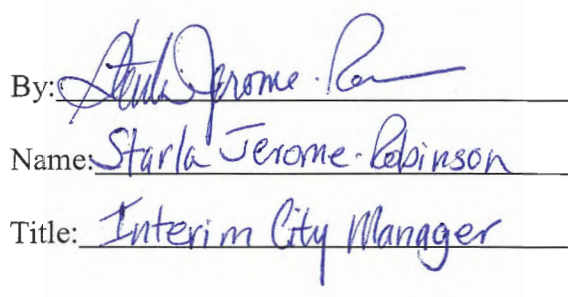 By: Starla Jerome-Ro
Name: Starla Jerome-Robinson
Title: Interim City Manager